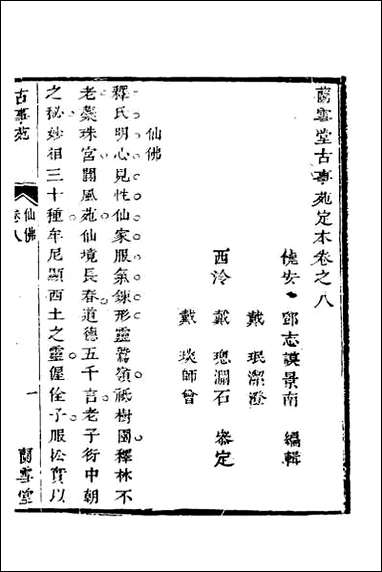 蘭雪堂古事苑定本卷之八
饒安 鄧志謨景南 編輯
戴 珉潔澄
西泠 戴 璁淵石 叅定
戴 琰師曾
仙佛
釋氏明心見性仙家服氣鍊形靈鷲嶺祗樹園釋林不
老蘂珠宮閬風苑仙境長春道德五千言老子衍中朝
之秘妙相三十種牟尼顯西土之靈偓佺子服松實以
古事苑
卷八
仙佛
一
蘭雪堂